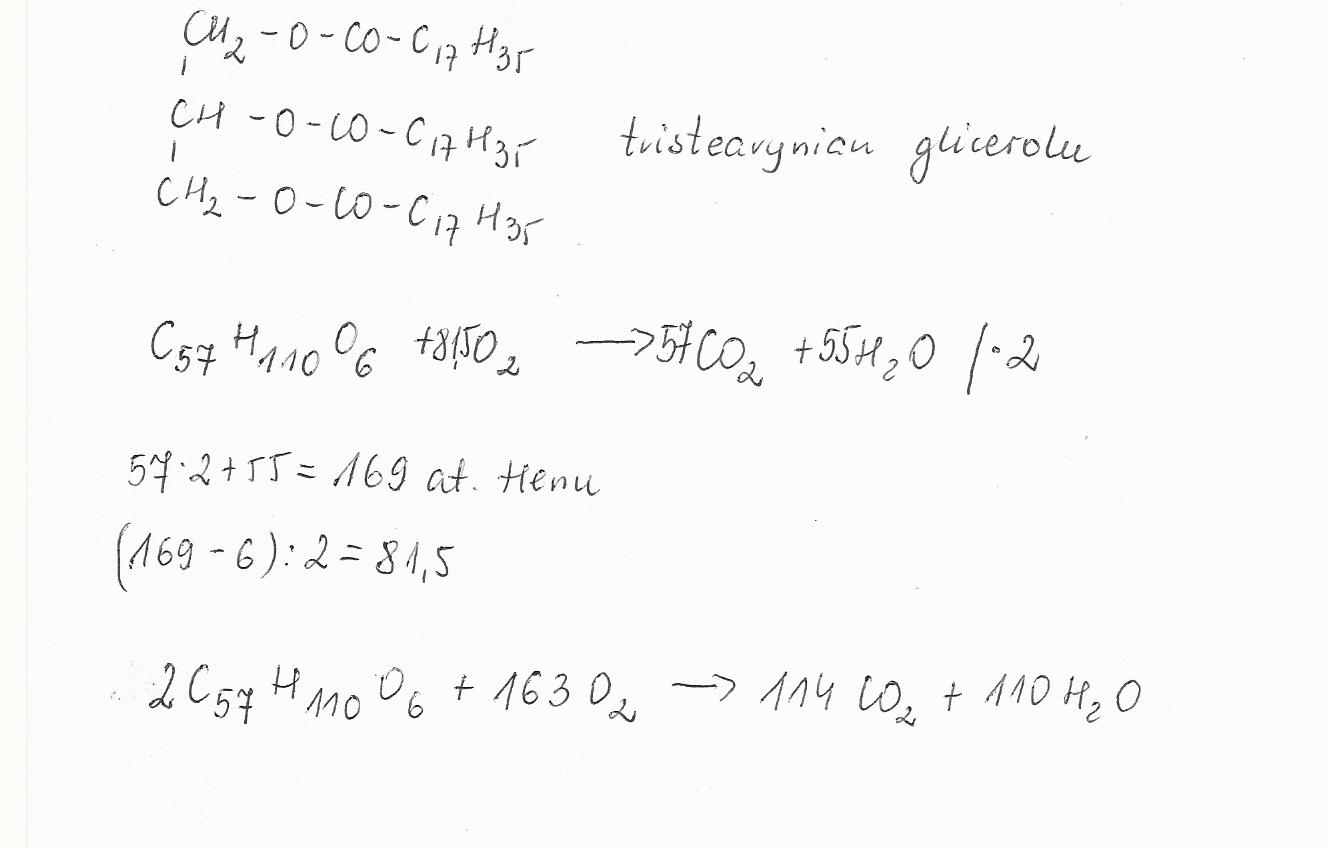 CH₂ - O - CO - C₁₇H₃₅
CH - O - CO - C₁₇H₃₅ tristearynian glicerolu
CH₂ - O - CO - C₁₇H₃₅
C₅₇H₁₁₀O₆ + 81,5O₂ → 57CO₂ + 55H₂O /·2
57·2+55 = 169 at. tlenu
(169 - 6):2 = 81,5
2C₅₇H₁₁₀O₆ + 163O₂ → 114CO₂ + 110H₂O